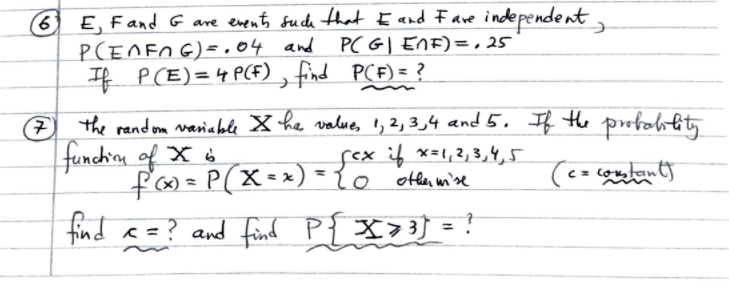 ⑥ E, F and G are events such that E and F are independent,
P(E∩F∩G)=.04 and P(G| E∩F)=.25
If P(E)=4P(F), find P(F)=?
⑦ The random variable X ha values 1, 2, 3, 4 and 5. If the probability
function of X is
f(x) = P(X=x) = { cx if x=1,2,3,4,5
0 otherwise (c = constant)
find c=? and find P{X⩾3}=?